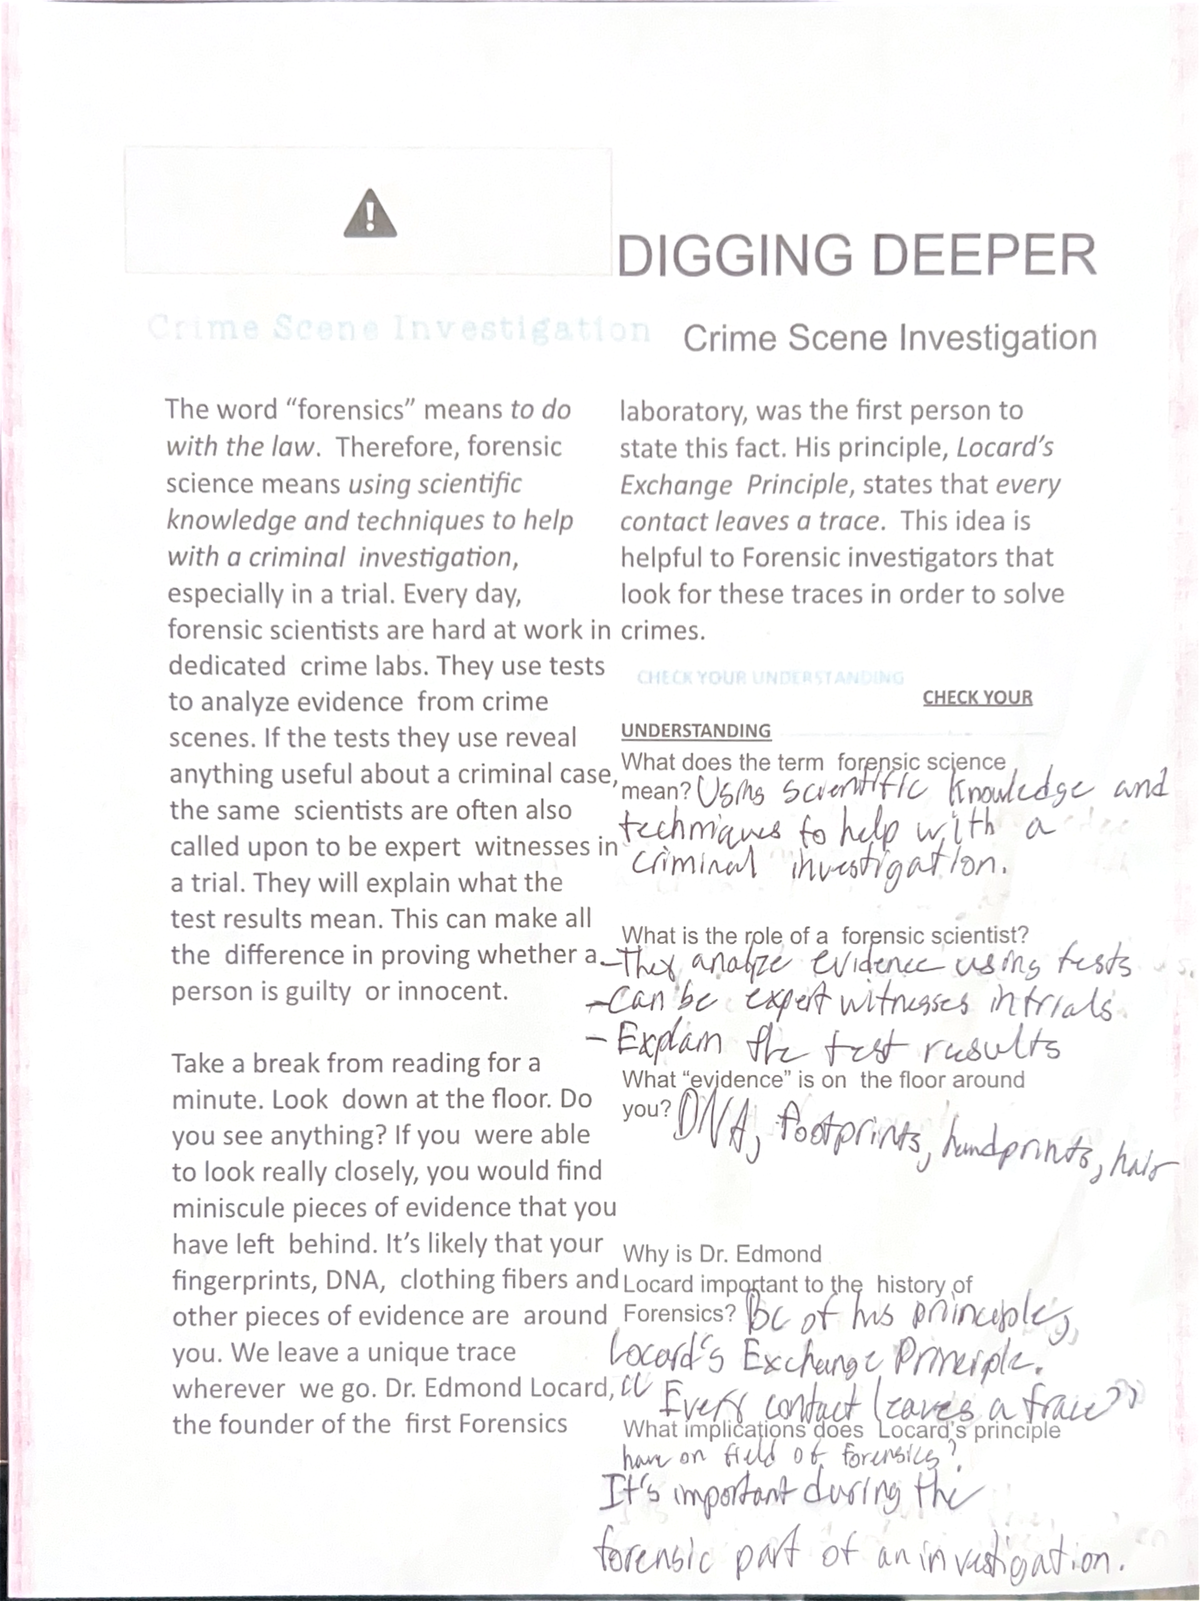 DIGGING DEEPER
Crime Scene Investigation
Crime Scene Investigation
The word “forensics” means to do
with the law. Therefore, forensic
science means using scientific
knowledge and techniques to help
with a criminal investigation,
especially in a trial. Every day,
forensic scientists are hard at work in
dedicated crime labs. They use tests
to analyze evidence from crime
scenes. If the tests they use reveal
anything useful about a criminal case,
the same scientists are often also
called upon to be expert witnesses in
a trial. They will explain what the
test results mean. This can make all
the difference in proving whether a
person is guilty or innocent.
Take a break from reading for a
minute. Look down at the floor. Do
you see anything? If you were able
to look really closely, you would find
miniscule pieces of evidence that you
have left behind. It’s likely that your
fingerprints, DNA, clothing fibers and
other pieces of evidence are around
you. We leave a unique trace
wherever we go. Dr. Edmond Locard,
the founder of the first Forensics
laboratory, was the first person to
state this fact. His principle, Locard’s
Exchange Principle, states that every
contact leaves a trace. This idea is
helpful to Forensic investigators that
look for these traces in order to solve
crimes.
CHECK YOUR UNDERSTANDING
CHECK YOUR
UNDERSTANDING
What does the term forensic science
mean? Using scientific knowledge and
techniques to help with a
criminal investigation.
What is the role of a forensic scientist?
- They analyze evidence using tests
- Can be expert witnesses in trials
- Explain the test results
What “evidence” is on the floor around
you? DNA, footprints, handprints, hair
Why is Dr. Edmond
Locard important to the history of
Forensics? Bc of his principle,
Locard's Exchange Principle.
"Every contact leaves a trace"
What implications does Locard’s principle
have on field of forensics?
It's important during the
forensic part of an investigation.